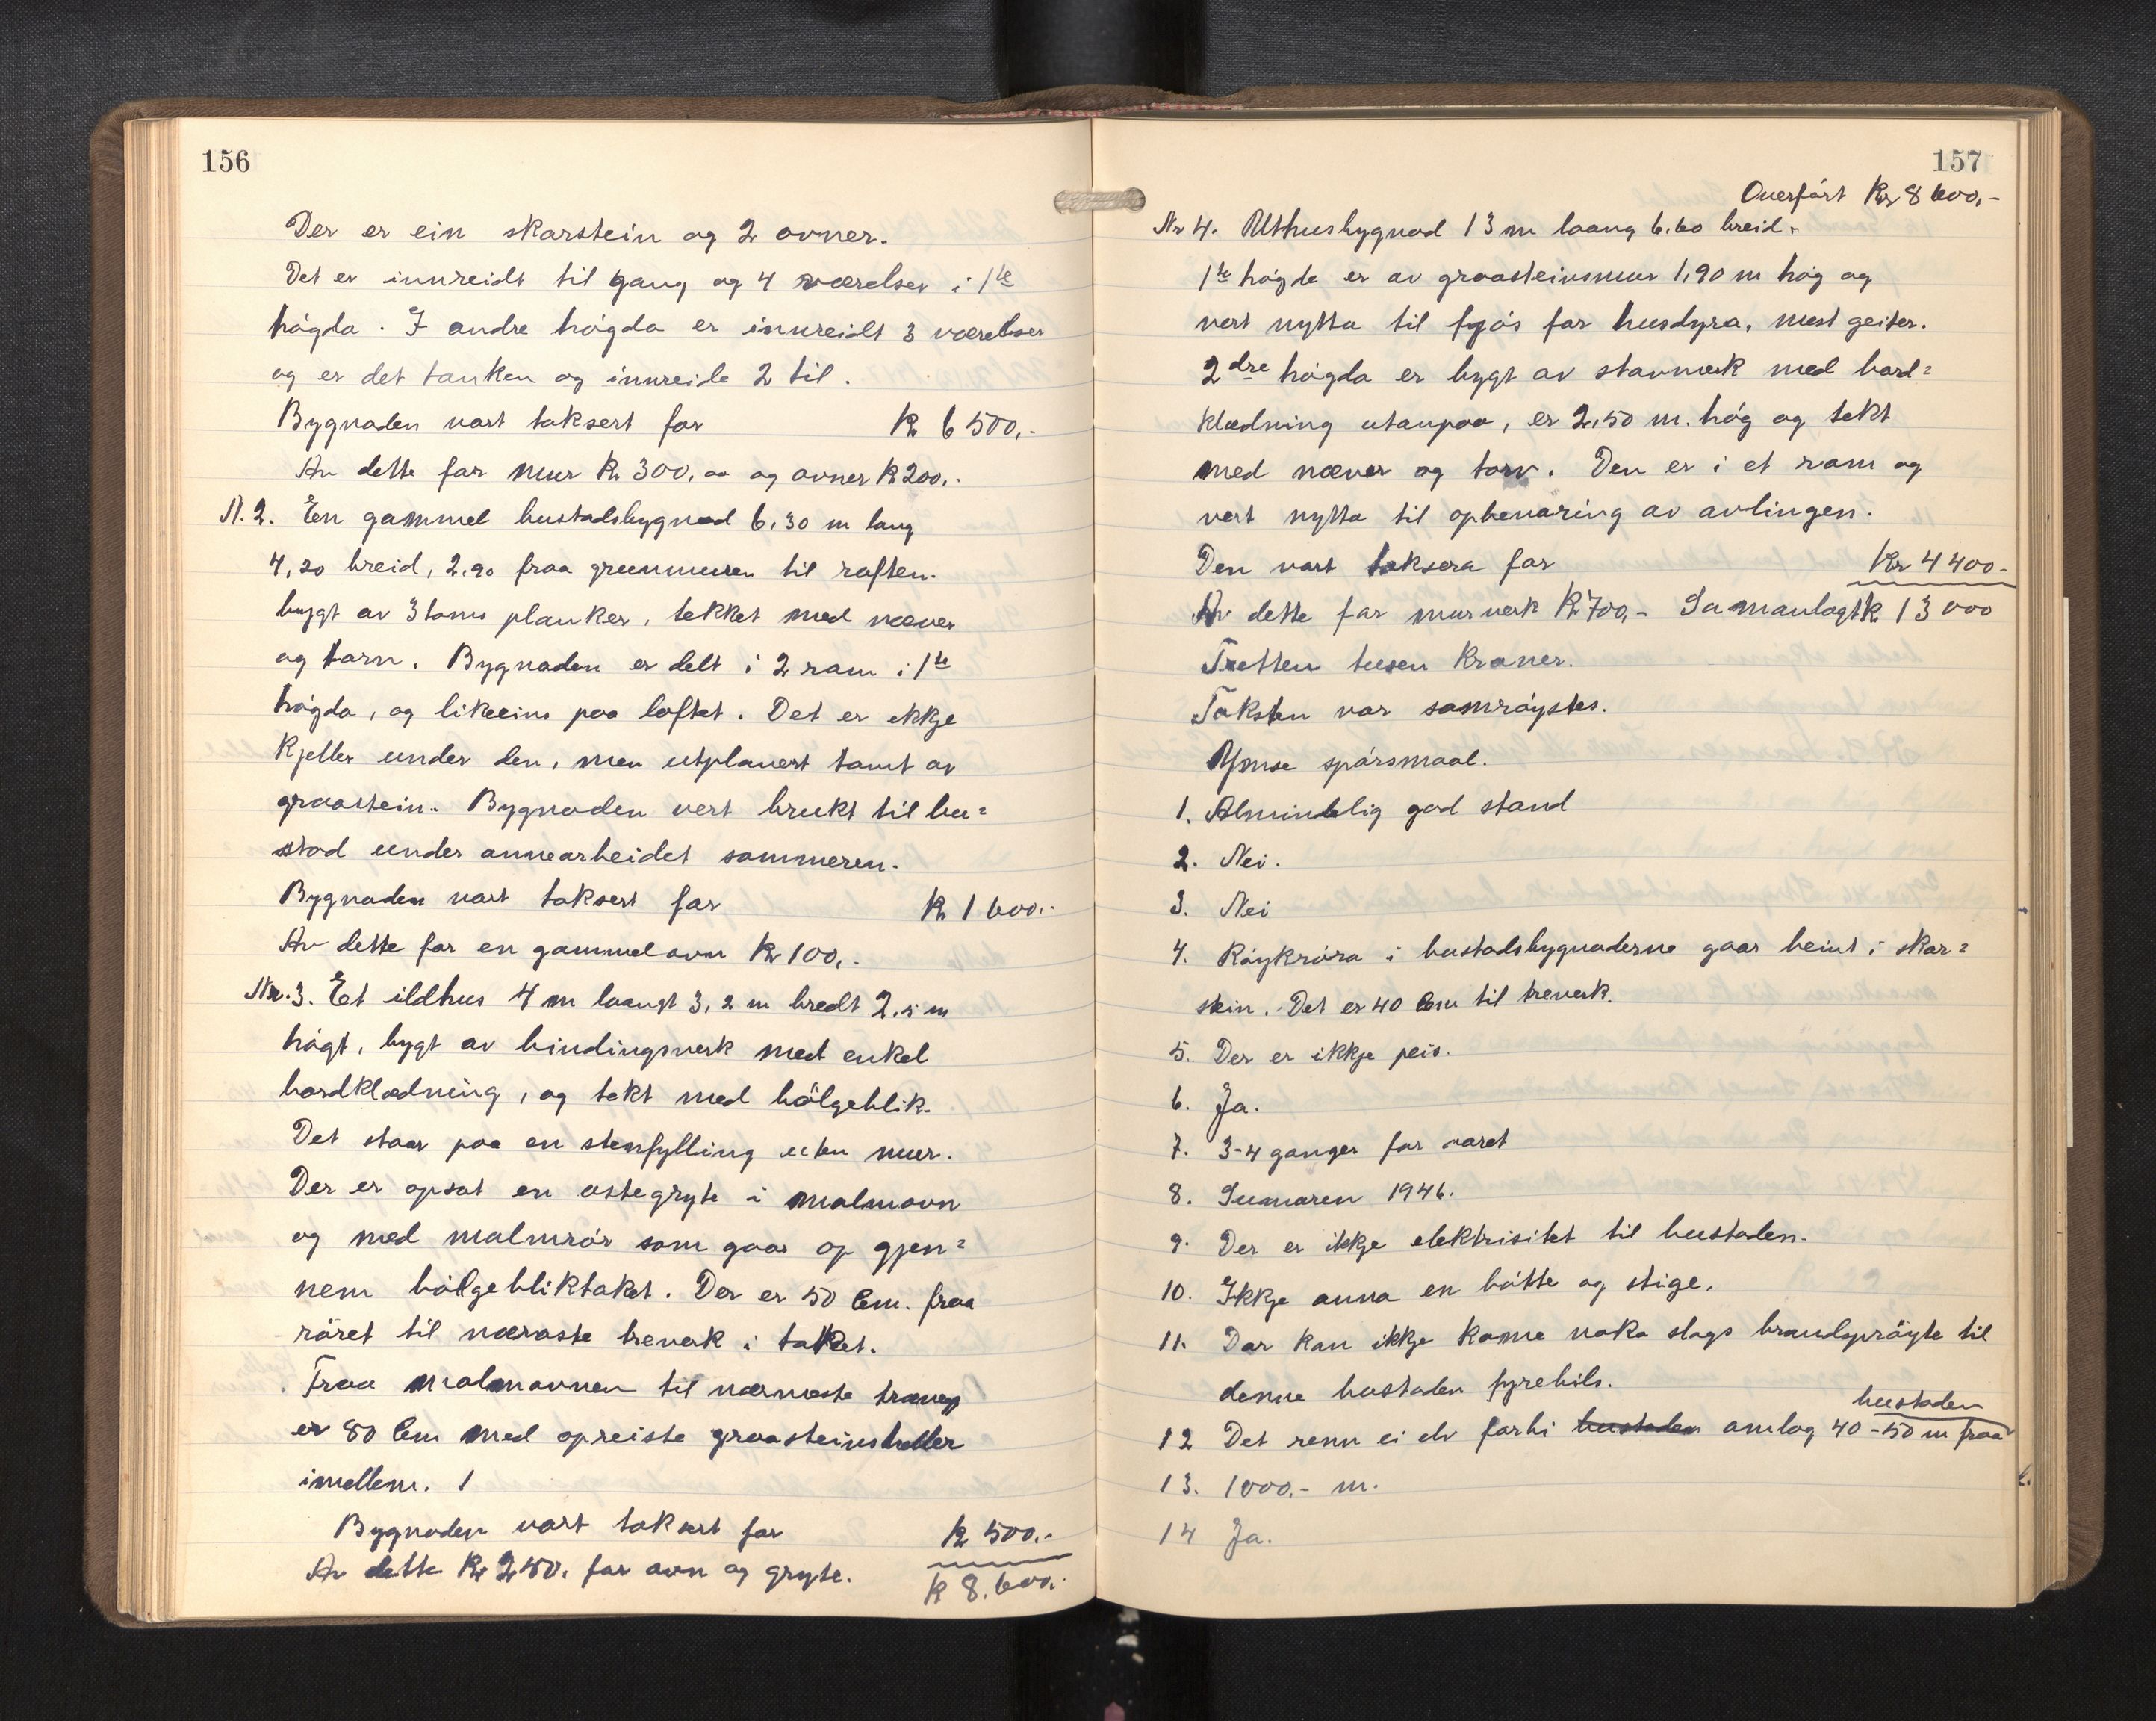 156
Der er ein skorstein og 2 ovner.
Det er innreidt til gang og 4 værelser i 1te
högda. I andre högda er innreidt 3 værelser
og er det tanken og innreide 2 til.
Bygnaden vart taksert for Kr 6 500,-
Av dette for mur Kr 300,00 og ovner Kr 200,-
N. 2. En gammel bustadsbygnad 6,30 m lang
4,20 breid, 2,90 fraa grunnmuren til raften.
bygt av 3 toms planker, tekket med never
og torv. Bygnaden er delt i 2 rom i 1te
högda, og likeeins paa loftet. Det er ekkje
Kjeller under den, men utplanert tomt av
graastein. Bygnaden vert brukt til bu=
stad under annearbeidet sommeren.
Bygnaden vart taksert for Kr 1 600,-
Av dette for en gammel ovn Kr 100,-
Nr. 3. Et ildhus 4 m laangt 3,2 m bredt 2,5 m
högt, bygt av bindingsverk med enkel
bordklædning, og tekt med bölgeblik.
Det staar paa en stenfylling uten mur.
Der er opsat en ostegryte i malmovn
og med malmrör som gaar op gjen=
nem bölgebliktaket. Der er 50 Cm. fraa
röret til næraste treverk i taket.
Fraa malmovnen til nærmeste trævegg
er 80 Cm med opreiste graasteinsheller
imellem. 1
Bygnaden vart taksert for Kr 500,-
Av dette Kr 250, for ovn og gryte.
Kr 8.600,-
157
Overfört Kr 8 600,-
Nr 4. Uthusbygnad 13 m laang 6.60 breid.
1te högde er av graasteinsmur 1,90 m hög og
vert nytta til fjös for husdyra, mest geiter.
2dre högda er bygt av stavverk med bord=
klædning utanpaa, er 2,50 m. hög og tekt
med næver og torv. Den er i et rom og
vert nytta til opbevaring av avlingen.
Den vart taksera for Kr 4 400-
Av dette for murverk Kr 700,- Samanlagt Kr 13 000
Tretten tusen Kroner.
Taksten var samröystes.
Ymse spörsmaal.
1. Almindelig god stand
2. Nei.
3. Nei
4. Röykröra i bustadsbygnaderne gaar beint i skor=
stein. Det er 40 Cm til treverk.
5. Der er ikkje peis.
6. Ja.
7. 3-4 ganger for aaret
8. Sumaren 1946.
9. Der er ikkje elektrisitet til bustaden.
10. Ikkje anna en bötte og stige.
11. Dar kan ikkje kome noka slags brandspröyte til
denne bustaden fyrebils.
bustaden
12 Det renn ei elv forbi bustaden omlag 40-50 m fraa
13. 1000.- m.
14 Ja.